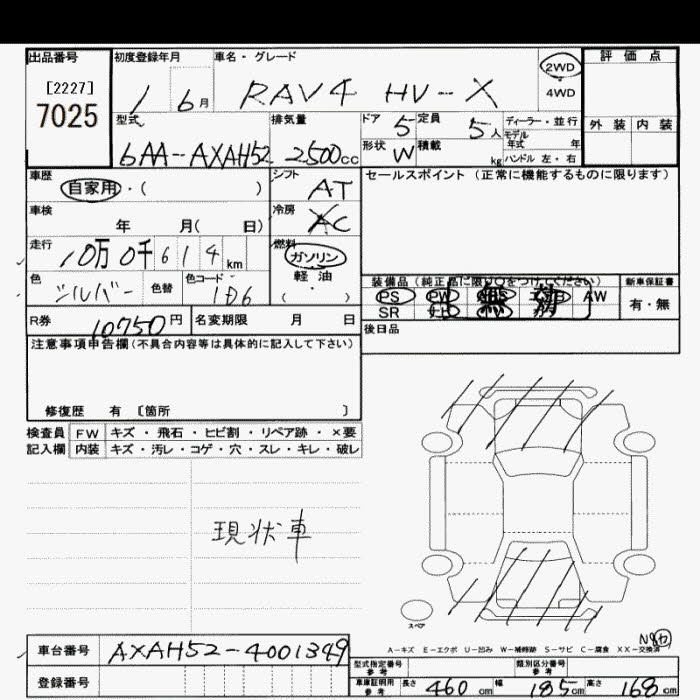 出品番号 初度登録年月 車名・グレード 2WD 評価点
[2227] 1 6月 RAV4 HV-X 4WD
7025 型式 排気量 ドア 5 定員 5人 ディーラー・並行 外装 内装
6AA-AXAH52 2500cc 形状 W 積載 kg モデル年式 年
ハンドル 左・右
車歴 自家用・( ) シフト AT セールスポイント (正常に機能するものに限ります)
車検 年 月( 日) 冷房 AC
走行 10万0千614km 燃料 ガソリン
軽油
( )
色 シルバー 色替 色コード 1D6
装備品 (純正品に限り○をつけてください) 新車保証書
PS PW AW 有・無
SR
R券 10750円 名変期限 月 日 後日品
注意事項申告欄(不具合内容等は具体的に記入して下さい)
修復歴 有 [箇所 ]
検査員 FW キズ・飛石・ヒビ割・リペア跡・×要
記入欄 内装 キズ・汚レ・コゲ・穴・スレ・キレ・破レ
現状車
スペア
A-キズ E-エクボ U-凹み W-補修跡 S-サビ C-腐食 XX-交換済
車台番号 AXAH52-4001349
登録番号
型式指定番号 参考 類別区分番号 参考
車庫証明用 参考 長さ 460cm 幅 185cm 高さ 168cm